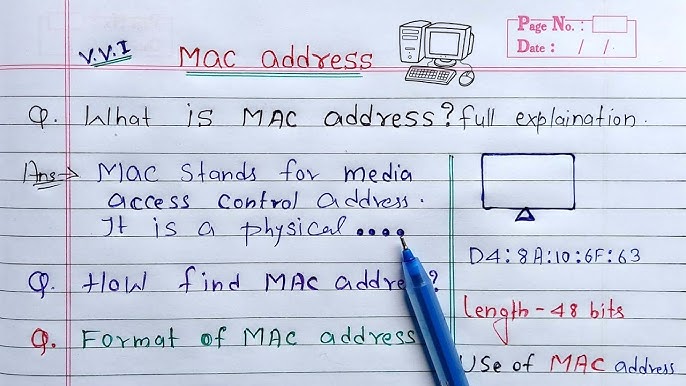 Page No. :
Date : / /
V.V.I
MAC address
Q. What is MAC address? full explaination.
Ans → MAC stands for media
access control address.
It is a physical ....
D4:8A:10:6F:63
Q. How find MAC address?
Length - 48 bits
Q. Format of MAC address
Use of MAC address